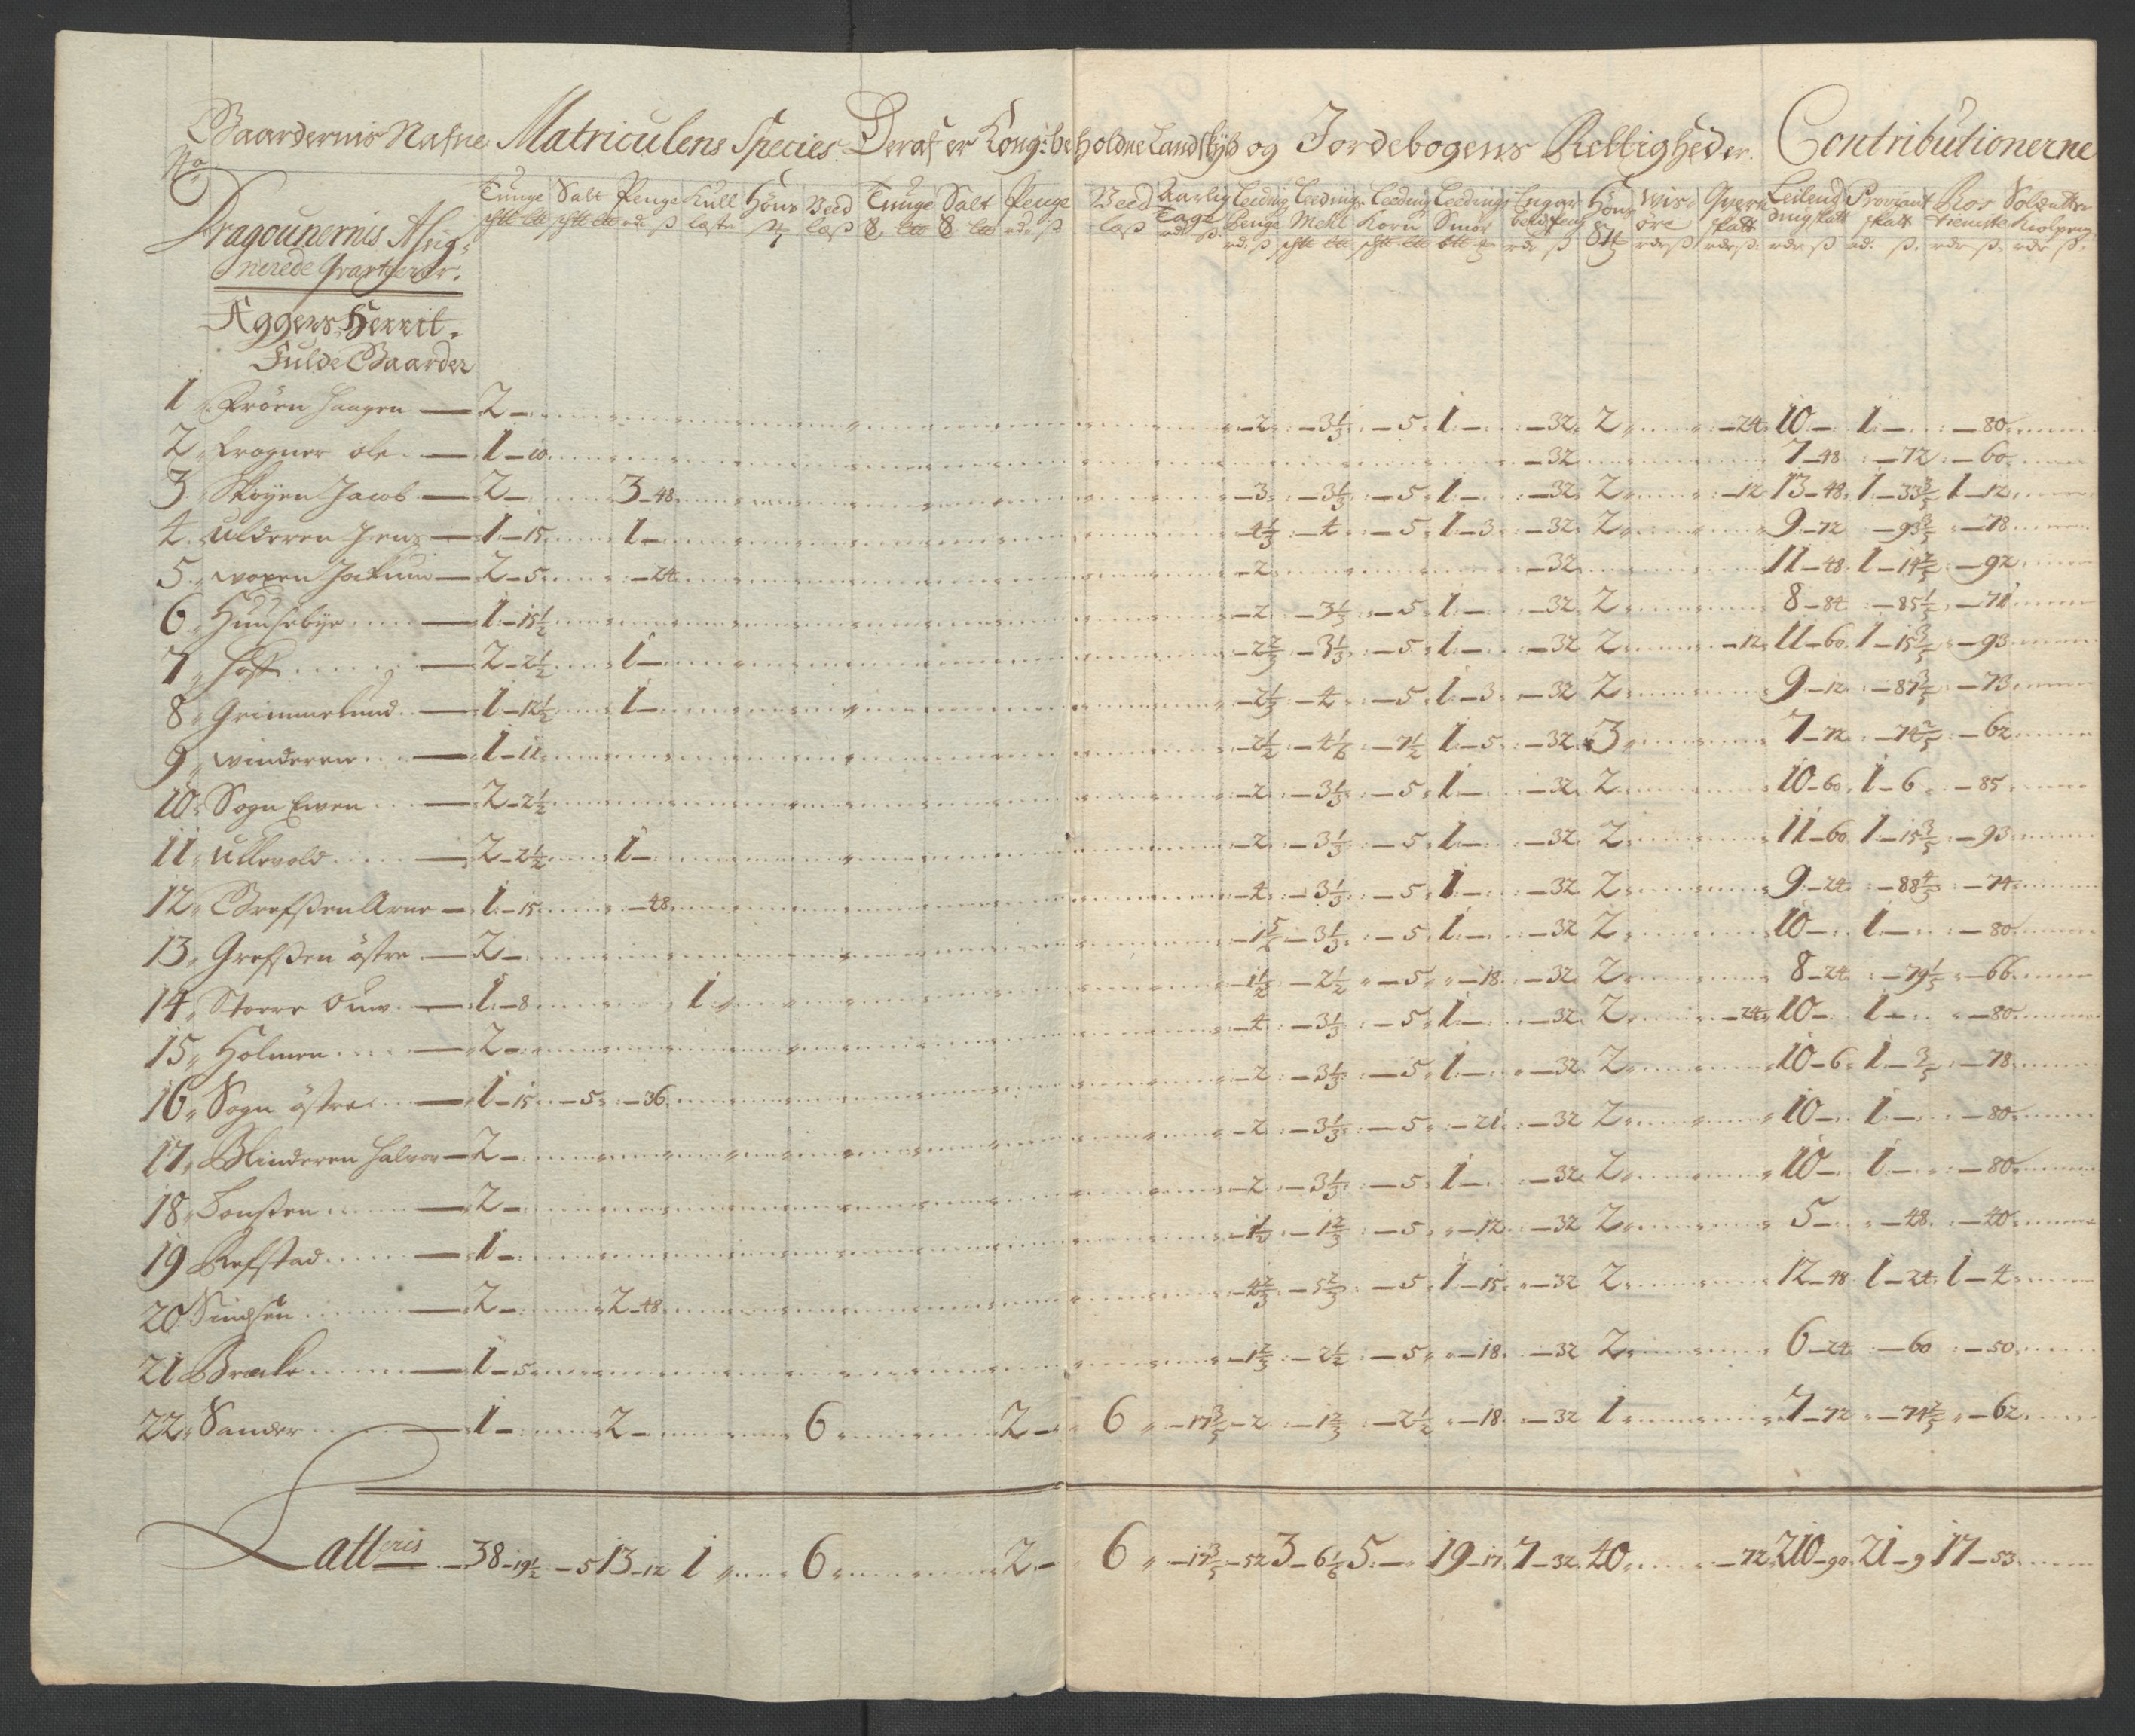 Gaardernis Nafne Matriculens Species Deraf er Kong: beholdne Landskyld og Jordebogens Rettigheder. Contributionerne
No
Tunge Salt Penge Kull Höns Veed Tunge Salt Penge Veed Aarlig Leeding Leedings Leeding Leedings Höns Wis- Qvern Leilend Proviant Ros Soldatter
Tage Penge Mehl Korn Smör öre skatt dingskatt skatt tieniste
Dragounernis Asig-
nerede Qvarteerer.
Aggers Herrit.
Fulde Gaarder
1 Fröen Haagen — 2 — — 2 — 3 1/3 — 5 1 — — 32 2 — 24 10 — 1 — — 80
2 Frogner ole — 1 — 10 — 32 7 — 48 — 72 — 60
3 Skoyen Jacob — 2 — 3 — 48 — 3 — 3 1/3 — 5 1 — — 32 2 — 12 13 — 48 1 — 33 3/5 1 — 12
4 Ulderen Jens — 1 — 15 1 — — 4 1/3 — 4 — 5 1 — 3 — 32 2 9 — 72 — 93 3/5 — 78
5 woxen — 2 — 5 — 24 — 2 — 32 11 — 48 1 — 14 2/5 — 92
6 Huusebye — 1 — 15 1/2 — 2 — 3 1/3 — 5 1 — — 32 2 8 — 84 — 85 1/5 — 71
7 Hoff — 2 — 2 1/2 1 — — 2 2/3 — 3 1/3 — 5 1 — — 32 2 — 12 11 — 60 1 — 15 3/5 — 93
8 Grimmelund — 1 — 12 1/2 1 — — 2 1/3 — 4 — 5 1 — 3 — 32 2 9 — 12 — 87 3/5 — 73
9 winderen — 1 — 11 — 2 1/2 — 4 1/6 — 7 1/2 1 — 5 — 32 3 7 — 72 — 74 2/5 — 62
10 Sogn Ewen — 2 — 2 1/2 — 2 — 3 1/3 — 5 1 — — 32 2 10 — 60 1 — 6 — 85
11 Ullevold — 2 — 2 1/2 1 — — 2 — 3 1/3 — 5 1 — — 32 2 11 — 60 1 — 15 3/5 — 93
12 Grefsen Arne — 1 — 15 — 48 — 4 — 3 1/3 — 5 1 — — 32 2 9 — 24 — 88 4/5 — 74
13 Grefsen östre — 2 — — 3 1/3 — 5 1 — — 32 2 10 — 1 — — 80
14 Storre — 1 — 8 1 — 1 1/2 — 2 1/2 — 5 — 18 — 32 2 8 — 24 — 79 1/5 — 66
15 Holmen — 2 — — 4 — 3 1/3 — 5 1 — — 32 2 — 24 10 — 1 — — 80
16 Sogn östre — 1 — 15 — 5 — 36 — 2 — 3 1/3 — 5 1 — — 32 2 10 — 6 1 — 3/5 — 78
17 Blinderen Halvor — 2 — — 2 — 3 1/3 — 5 — 21 — 32 2 10 — 1 — — 80
18 — 2 — — 2 — 3 1/3 — 5 1 — — 32 2 10 — 1 — — 80
19 Refstad — 1 — — 1 1/2 — 1 2/3 — 5 — 12 — 32 2 5 — — 48 — 40
20 Sindsen — 2 — 2 — 48 — 4 2/3 — 5 2/3 — 5 1 — 15 — 32 2 12 — 48 1 — 24 1 — 4
21 — 1 — 5 — 1 2/3 — 2 1/2 — 5 — 18 — 32 2 6 — 24 — 60 — 50
22 Sander — 1 — 2 — 6 2 — 6 — 17 3/5 — 2 — 1 2/3 — 2 1/2 — 18 — 32 1 7 — 72 — 74 2/5 — 62
Latteris — 38 — 19 1/2 — 5 13 — 12 1 6 2 — 6 — 17 3/5 — 52 3 — 6 1/6 5 — 19 — 17 7 — 32 40 — 72 210 — 90 21 — 9 17 — 53